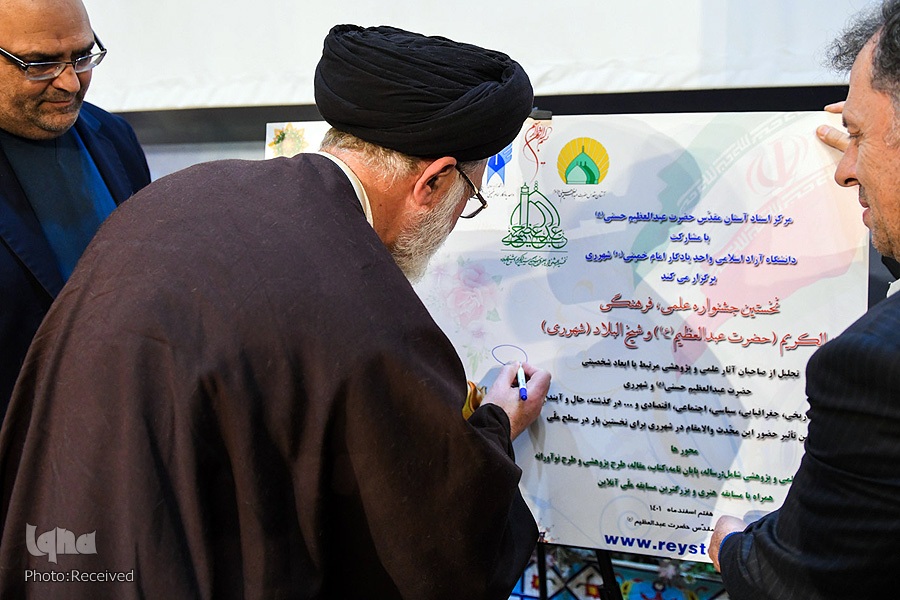 مرکز اسناد آستان مقدّس حضرت عبدالعظیم حسنی(ع)
با مشارکت
دانشگاه آزاد اسلامی واحد یادگار امام خمینی(ره) شهرری
برگزار می کند
نخستین جشنواره علمی، فرهنگی
الکریم (حضرت عبدالعظیم(ع)) و شیخ البلاد (شهرری)
تجلیل از صاحبان آثار علمی و پژوهشی مرتبط با ابعاد شخصیتی
حضرت عبدالعظیم حسنی(ع) و شهرری
جغرافیایی، سیاسی، اجتماعی، اقتصادی و ... در گذشته، حال و
تأثیر حضور این محّدث والامقام در شهرری برای نخستین بار در سطح ملّی
محور ها
و پژوهشی شامل: رساله، پایان نامه، کتاب، مقاله، طرح پژوهشی و طرح نوآورانه
همراه با مسابقه هنری و بزرگترین مسابقه ملّی آنلاین
هفتم اسفندماه ۱۴۰۱
مقدّس حضرت عبدالعظیم (ع)
www.reyst
iqna
Photo:Received